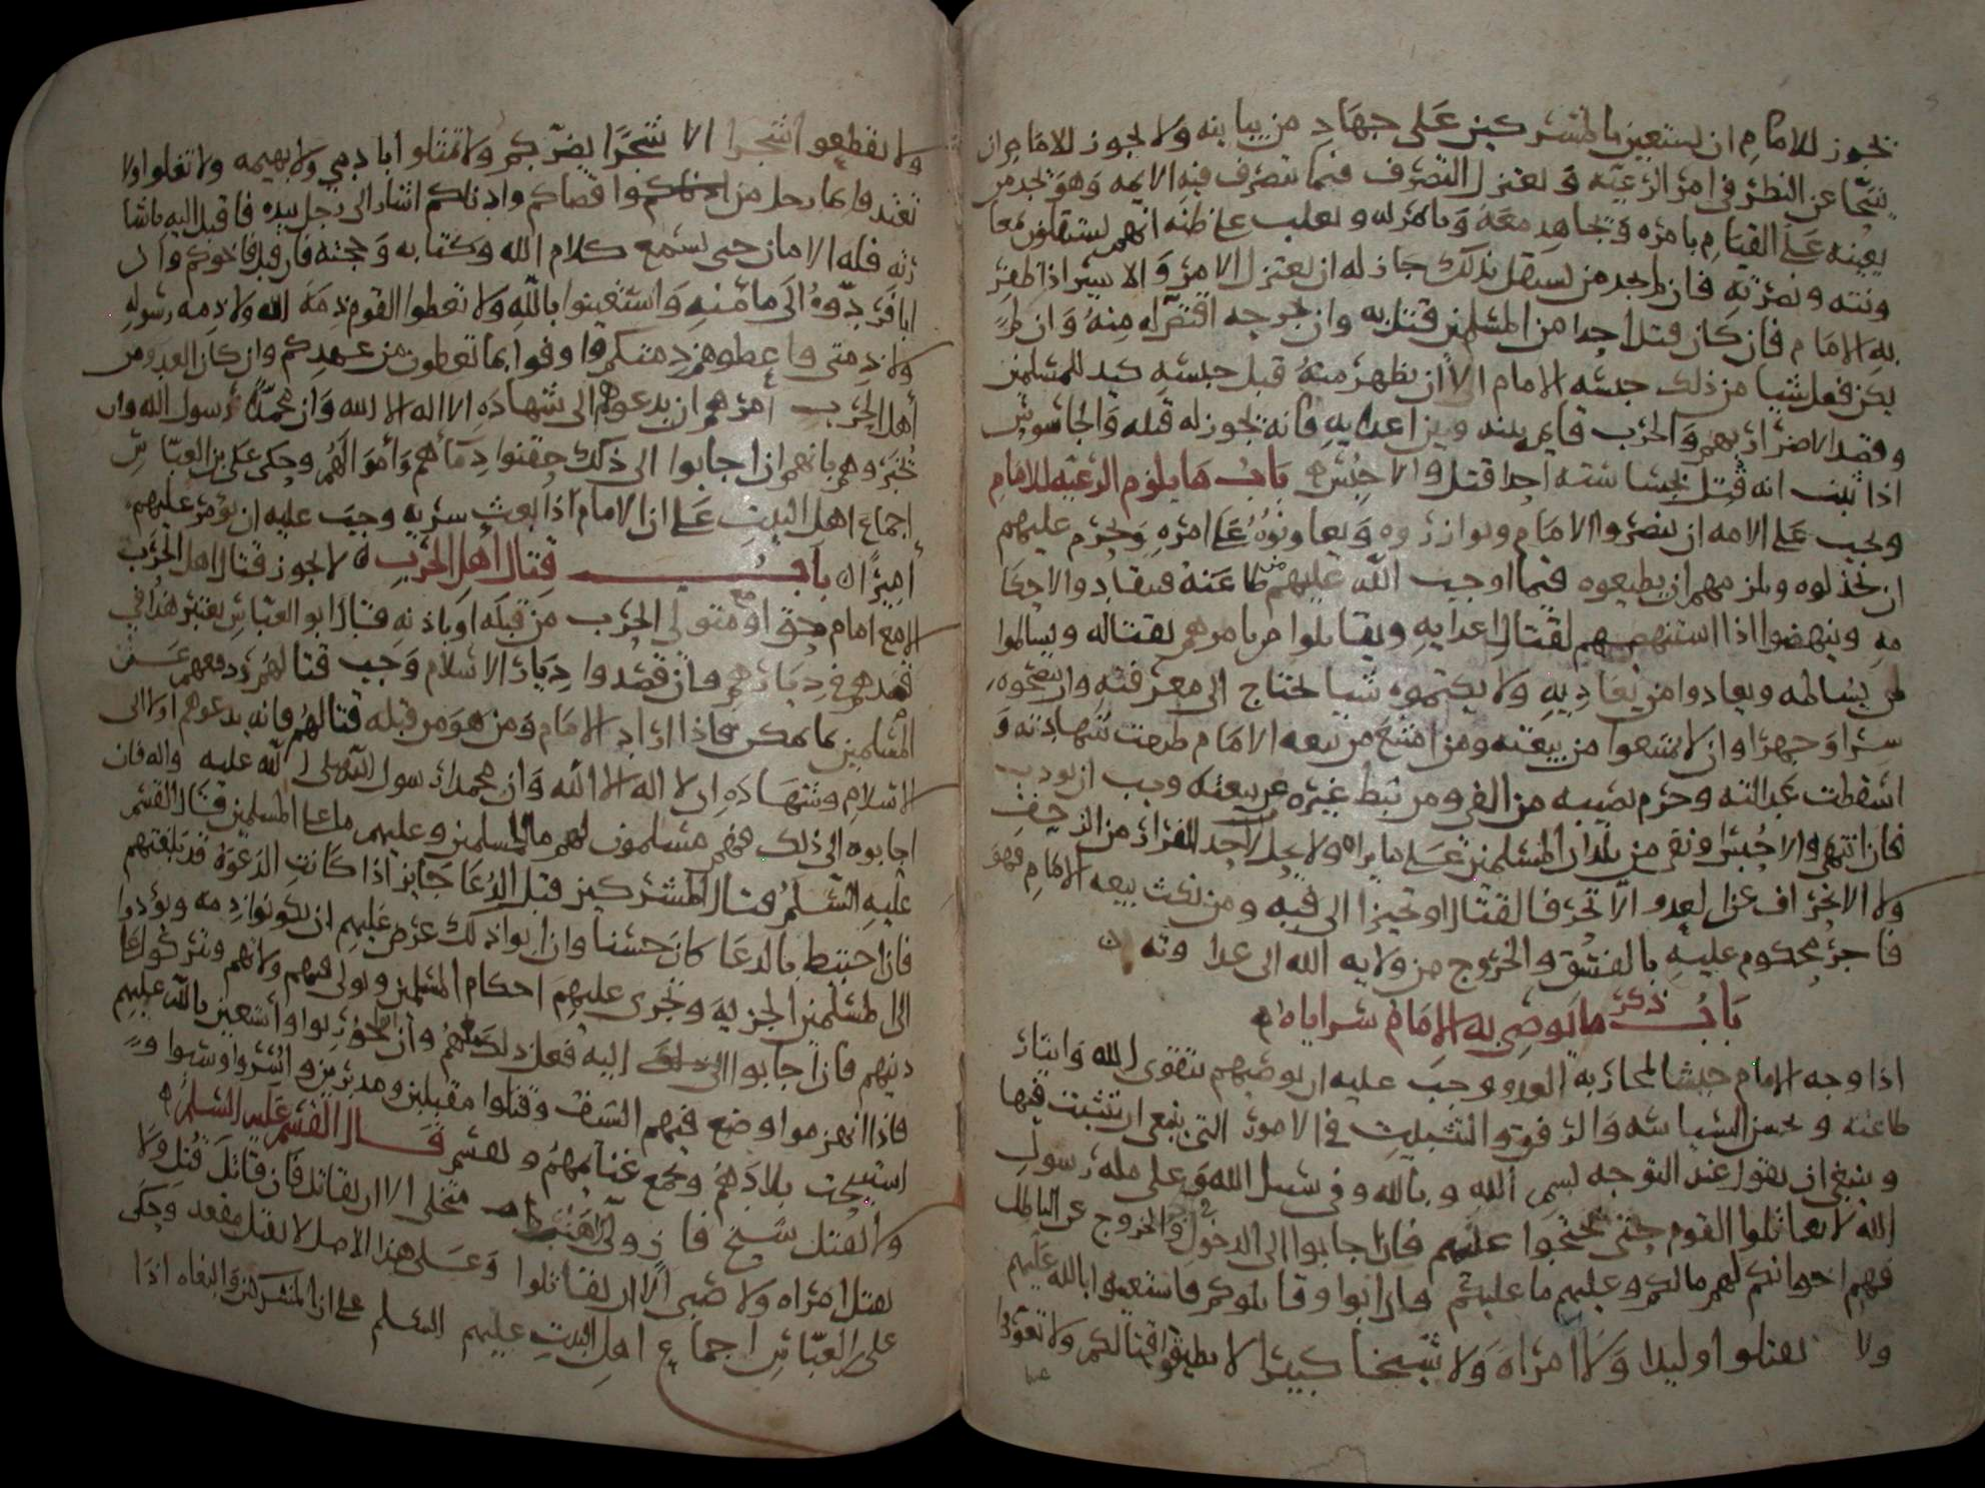 يجوز للامام ان يستعين بالمشركين على جهاد من يباينه ولا يجوز للامام ان
يتنحا عن النظر في امر الرعيه و يعتزل التصرف فيما تتصرف فيه الايمه وهو يجد من
يعينه على القيام بامره و يجاهد معه و يامر له و يغلب على ظنه انهم يستقلون بمعا
ونته ونصرته فان لم يجد من يستقل بذلك جاز له ان يعتزل الامر والاسير اذا ظفر
به الامام فان كان قتل احدا من المسلمين قتل به وان جرحه اقتص له منه وان لم
يكن فعل شيا من ذلك حبسه الامام الا ان يظهر منه قبل حبسه كيد للمسلمين
وقصد الاضرار بهم والحرب قايم بينه وبين اعدايه فانه يجوز له قتله والجاسوس
اذا ثبت انه قتل بجساسته احدا قتل والا حبس باب ما يلزم الرعيه للامام
ويجب على الامه ان ينصروا الامام ويوازروه ويعاونوه على امره ويحرم عليهم
ان يخذلوه ويلزمهم ان يطيعوه فيما اوجب الله عليهم من طاعته فينقادوا لاحكا
مه وينهضوا اذا استنهضهم لقتال اعدايه ويقاتلوا من يامرهم بقتاله ويسالموا
من يسالمه ويعادوا من يعاديه ولا يكتموه شيا يحتاج الى معرفته وان ينصحوه
سرا وجهرا وان لا يمتنعوا من بيعته ومن امتنع من بيعه الامام طرحت شهادته و
اسقطت عدالته وحرم نصيبه من الفي ومن ثبط غيره عن بيعته وجب ان يودب
فان انتهى والا حبس او نفي من بلدان المسلمين على ما يراه ولا يحل لاحد الفرار من الزحف
ولا الانحراف عن العدو الا تحرفا لقتال او تحيزا الى فيه ومن نكث بيعه الامام فهو
فاجر محكوم عليه بالفسق والخروج من ولايه الله الى عداوته
باب ذكر ما يوصي به الامام سراياه
اذا وجه الامام جيشا لمحاربه العدو وجب عليه ان يوصيهم بتقوى الله وايثار
طاعته و بحسن السياسه والرفق والتثبيت في الامور التي ينبغي ان يتثبت فيها
وينبغي ان يقول عند التوجه بسم الله وبالله وفي سبيل الله وعلى مله رسول
الله لا تقاتلوا القوم حتى تحتجوا عليهم فان اجابوا الى الدخول في الحق والخروج عن الباطل
فهم اخوانكم لهم مالكم وعليهم ما عليكم وان ابوا وقاتلوكم فاستعينوا بالله عليهم
ولا تقتلوا وليدا ولا امراه ولا شيخا كبيرا لا يطيق قتالكم ولا تعوروا
عينا
ولا تقطعوا شجرا الا شجرا يضر بكم ولا تمثلوا بادمي ولا بهيمه ولا تغلوا ولا
تعتدوا وايما رجل من اقصاكم وادناكم اشار الى رجل بيده فاقبل اليه باشا
رته فله الامان حتى يسمع كلام الله وكتابه وحجته فان قبل فاخوكم وان
ابا فردوه الى مامنه واستعينوا بالله ولا تعطوا القوم ذمه الله ولا ذمه رسوله
ولا ذمتي واعطوهم ذمتكم واوفوا بما تعطون من عهدكم وان كان العدو من
اهل الحرب امرهم ان يدعوهم الى شهاده الا اله الا الله وان محمدا رسول الله وان
يخبروهم بانهم ان اجابوا الى ذلك حقنوا دماهم واموالهم وحكى علي بن العباس
اجماع اهل البيت على ان الامام اذا بعث سريه وجب عليه ان يؤمر عليهم
اميرا باب قتال اهل الحرب لا يجوز قتال اهل الحرب
الا مع امام حق او متولي الحرب من قبله او باذنه قال ابو العباس يعتبر هذا في
قصدهم في ديارهم فان قصدوا ديار الاسلام وجب قتالهم ودفعهم عن
المسلمين بما يمكن فاذا اراد الامام ومن هو من قبله قتالهم فانه يدعوهم اولا الى
الاسلام وشهاده ان لا اله الا الله وان محمدا رسول الله صلى الله عليه واله فان
اجابوه الى ذلك فهم مسلمون لهم ما للمسلمين وعليهم ما على المسلمين قال القسم
عليه السلم قتال المشركين قبل الدعا جايز اذا كانت الدعوه قد بلغتهم
فان احتيط بالدعا كان حسنا وان ابوا ذلك عرض عليهم ان يكونوا ذمه ويؤدوا
الى المسلمين الجزيه وتجرى عليهم احكام المسلمين ويولى فيهم ولاتهم ويتركوا على
دينهم فان اجابوا الى اليه فعل ذلك معهم وان ابوا حوربوا واستعين بالله عليهم
فاذا انهزموا وضع فيهم السيف وقتلوا مقبلين ومدبرين واسروا وسبوا و
استبيحت بلادهم وتجمع غنايمهم وتقسم قال القسم عليه السلم
ولا يقتل شيخ فان ولا راهب متخلى الا ان يقاتل فان قاتل قتل ولا
تقتل امراه ولا صبي الا ان يقاتلوا وعلى هذا الاصل لا يقتل مقعد وحكى
علي بن العباس اجماع اهل البيت عليهم السلم على ان المشركين والبغاه اذا